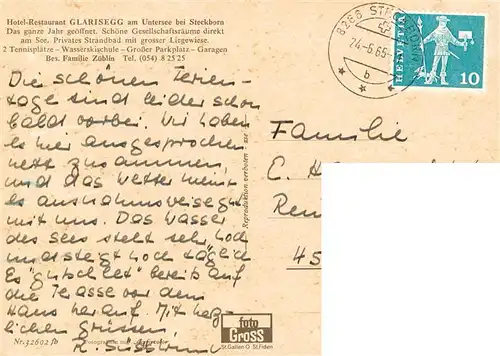 Hotel-Restaurant GLARISEGG am Untersee bei Steckborn
Das ganze Jahr geöffnet. Schöne Gesellschaftsräume direkt
am See. Privates Strandbad mit grosser Liegewiese.
2 Tennisplätze – Wasserskischule – Großer Parkplatz – Garagen
Bes. Familie Züblin Tel. (054) 8 25 25
8266 STECKBORN
24-6.65-
b
HELVETIA
10
Die schönen Ferien-
tage sind leider schon
bald vorbei. Wir haben
es hier ausgesprochen
nett zusammen,
und das Wetter meint
es ausnahmsweise gut
mit uns. Das Wasser
des Sees steht sehr hoch
und steigt noch täglich
Es "gütschelet" bereits auf
die Terasse vor dem
Haus herauf. Mit herz-
lichen Grüssen,
Familie
E. H
Ren
45
Reproduktion verboten
foto
GROSS
St.Gallen O St.Fiden
Nr. 32602 fb